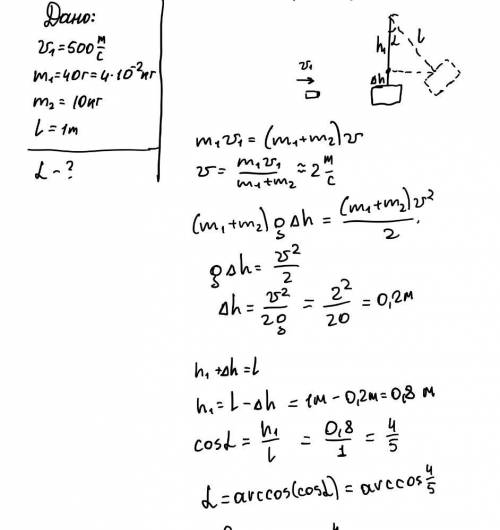 Дано:
v₁ = 500 м/с
m₁ = 40г = 4·10⁻² кг
m₂ = 10кг
l = 1м
L - ?
v₁
h₁
L
l
Δh
m₁v₁ = (m₁+m₂)v
v = m₁v₁/(m₁+m₂) ≈ 2 м/с
(m₁+m₂)gΔh = (m₁+m₂)v²/2.
gΔh = v²/2
Δh = v²/2g = 2²/20 = 0,2м
h₁+Δh = l
h₁ = l-Δh = 1м-0,2м = 0,8 м
cosL = h₁/l = 0,8/1 = 4/5
L = arccos(cosL) = arccos 4/5